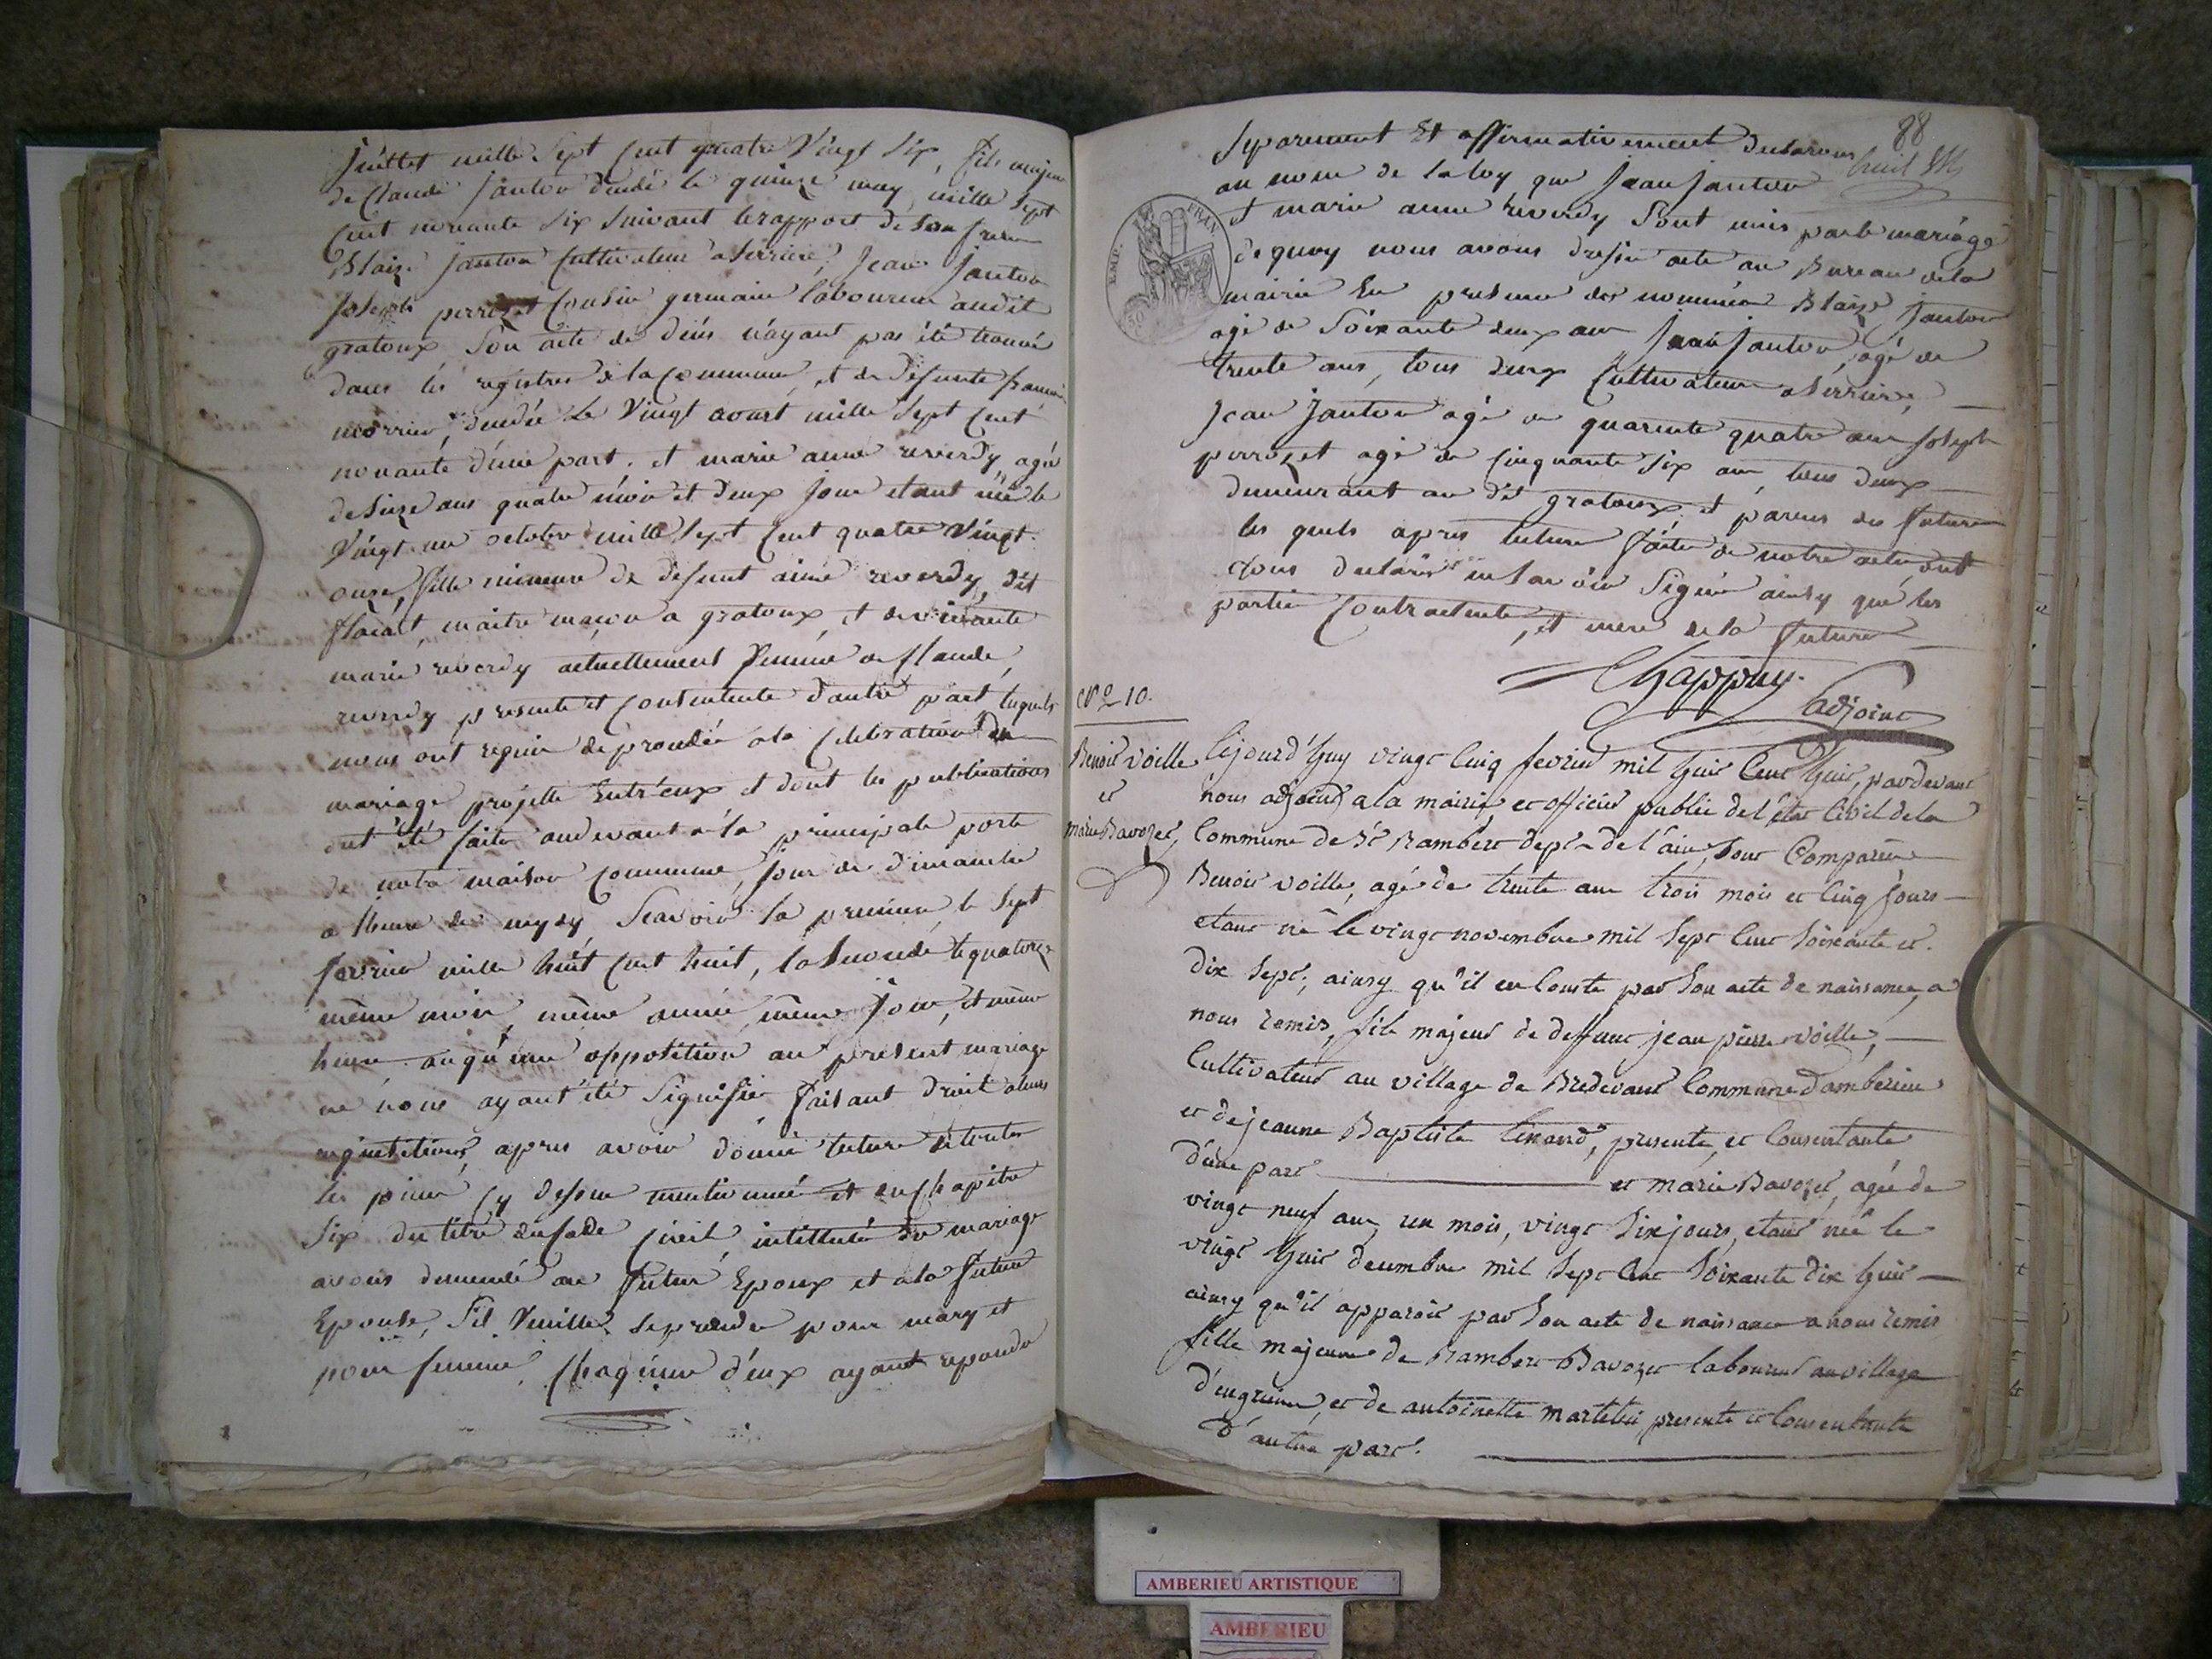 juillet mille Sept Cent quatre Vingt Six, fils majeur
de Claude janton décédé le quinze may mille Sept
Cent nonante Six Suivant le rapport de Son frere
Blaize janton Cultivateur a Serriere, Jean janton
joseph perrozet Cousin germain laboureur au dit
gratoux Son acte de décés n'ayant pas été trouvé
dans les registres de la Commune, et de defunte
morrier, décédée Le Vingt aoust mille Sept Cent
nonante d'une part. et marie anne reverdy agée
de Sieze ans quatre mois et deux jour etant née le
Vingt un octobre mille Sept Cent quatre Vingt
onze, fille mineure de defunt aimé reverdy, dit
maitre maçon a gratoux, et de vivante
marie reverdy actuellement femme de Claude
reverdy presente et Consentente d'autre part lesquels
nous ont requis de procedér a la Célébration du
mariage projetté Entr'eux et dont les publications
ont été faites au devant de la principale porte
de notre maison Commune, jour de dimanche
a l'heure de mydy Scavoir la premiere le Sept
fevrier mille huit Cent huit, la Seconde le quatorze
même mois, même année, même jour, et même
heure, auqu'une opposition au present mariage
ne nous ayant été Signifiée faisant droit a leurs
requisitions, apres avoir donné lecture de toutes
les pieces Cy dessus mentionnées et du Chapitre
Six du titre du Code Civil intittulé du mariage
avons demendé au futur Epoux et a la future
Epouse, S'il Veuille Se prendre pour mary et
pour femme, Chaqu'un d'eux ayant repondu
88
Sparement Et affirmativement declarons
au nom de la loy que jean janton
huit
et marie anne reverdy Sont unis par le mariage
EMP. FRAN.
de quoy nous avons dressé acte au Bureau de la
mairie En presence des nommées Blaize janton
agé de Soixante deux ans jean janton, agé de
trente ans, tous deux Cultivateur a Serriere,
Jean janton agé de quarente quatre ans joseph
perrozet agé de Cinquante Six ans, tous deux
demeurant au dit gratoux et parens des futurs
les quels apres lecture faite de notre acte, ont
tous declarés ne Savoir Signér ainsy que les
partie Contractente, et mere de la future
Chappuy
adjoint
N° 10.
Benoit voille
et
marie Bavozet,
Cejourd'huy vingt Cinq fevrier mil huit Cent huit, pardevant
nous adjoint a la mairie et officier public de l'état Civil de la
Commune de St Rambert dept de l'ain, Sont Comparûs
Benoit voille, agé de trente ans trois mois et Cinq jours
etant né le vingt novembre mil Sept Cent Soixante et
dix Sept, ainsy qu'il en Conste par Son acte de naissance, a
nous remis, fils majeur de deffunt jean pierre voille,
Cultivateur au village de Bredevant Commune d'amberieu
et de jeanne Baptiste Tenand, presente, et Consentante
d'une part et marie Bavozet, agée de
vingt neuf ans, un mois, vingt Sixjours, etant née le
vingt huit decembre mil Sept Cent Soixante dix huit
ainsy qu'il apparoit par Son acte de naissance a nous remis
fille majeure de Rambert Bavozet laboureur au village
d'angrieres, et de antoinette martelin, presente et Consentante
d'autre part.
AMBERIEU ARTISTIQUE
AMBERIEU